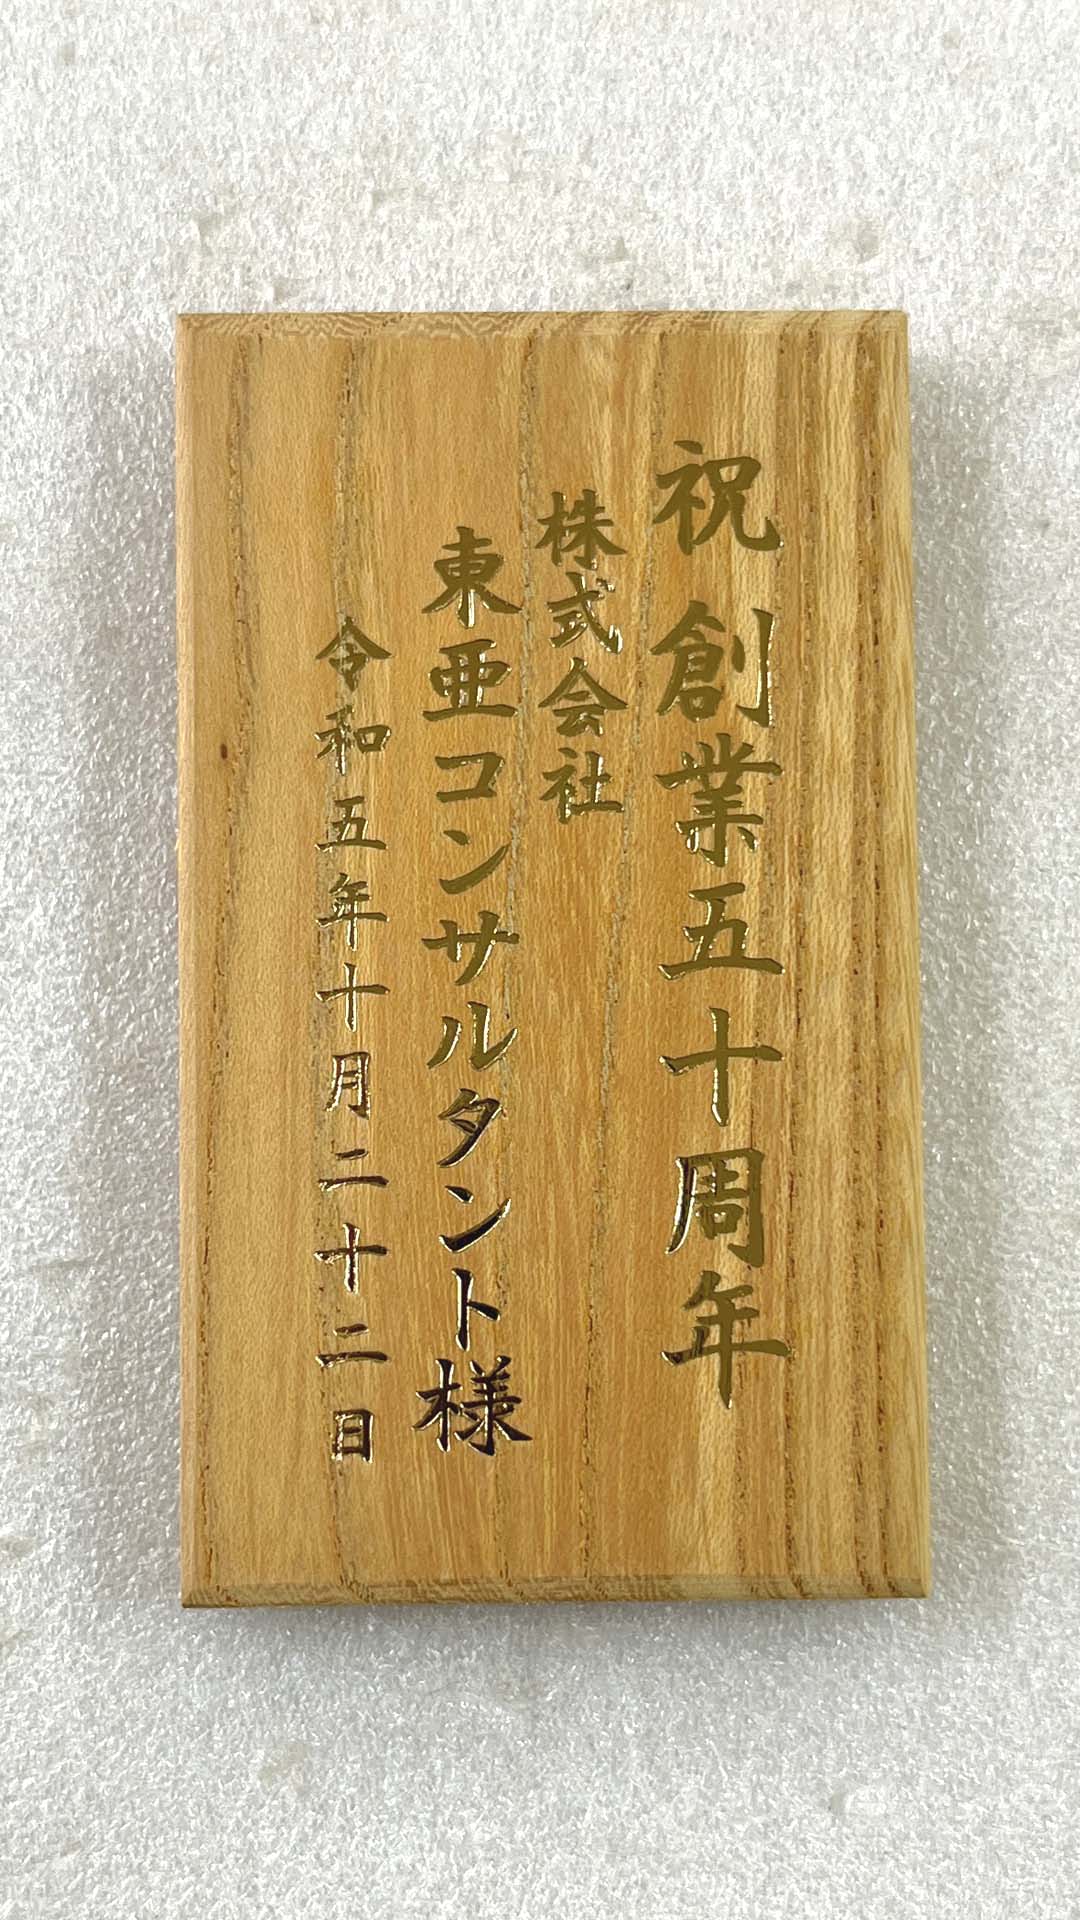 祝 創業五十周年
株式会社
東亜コンサルタント様
令和五年十月二十二日